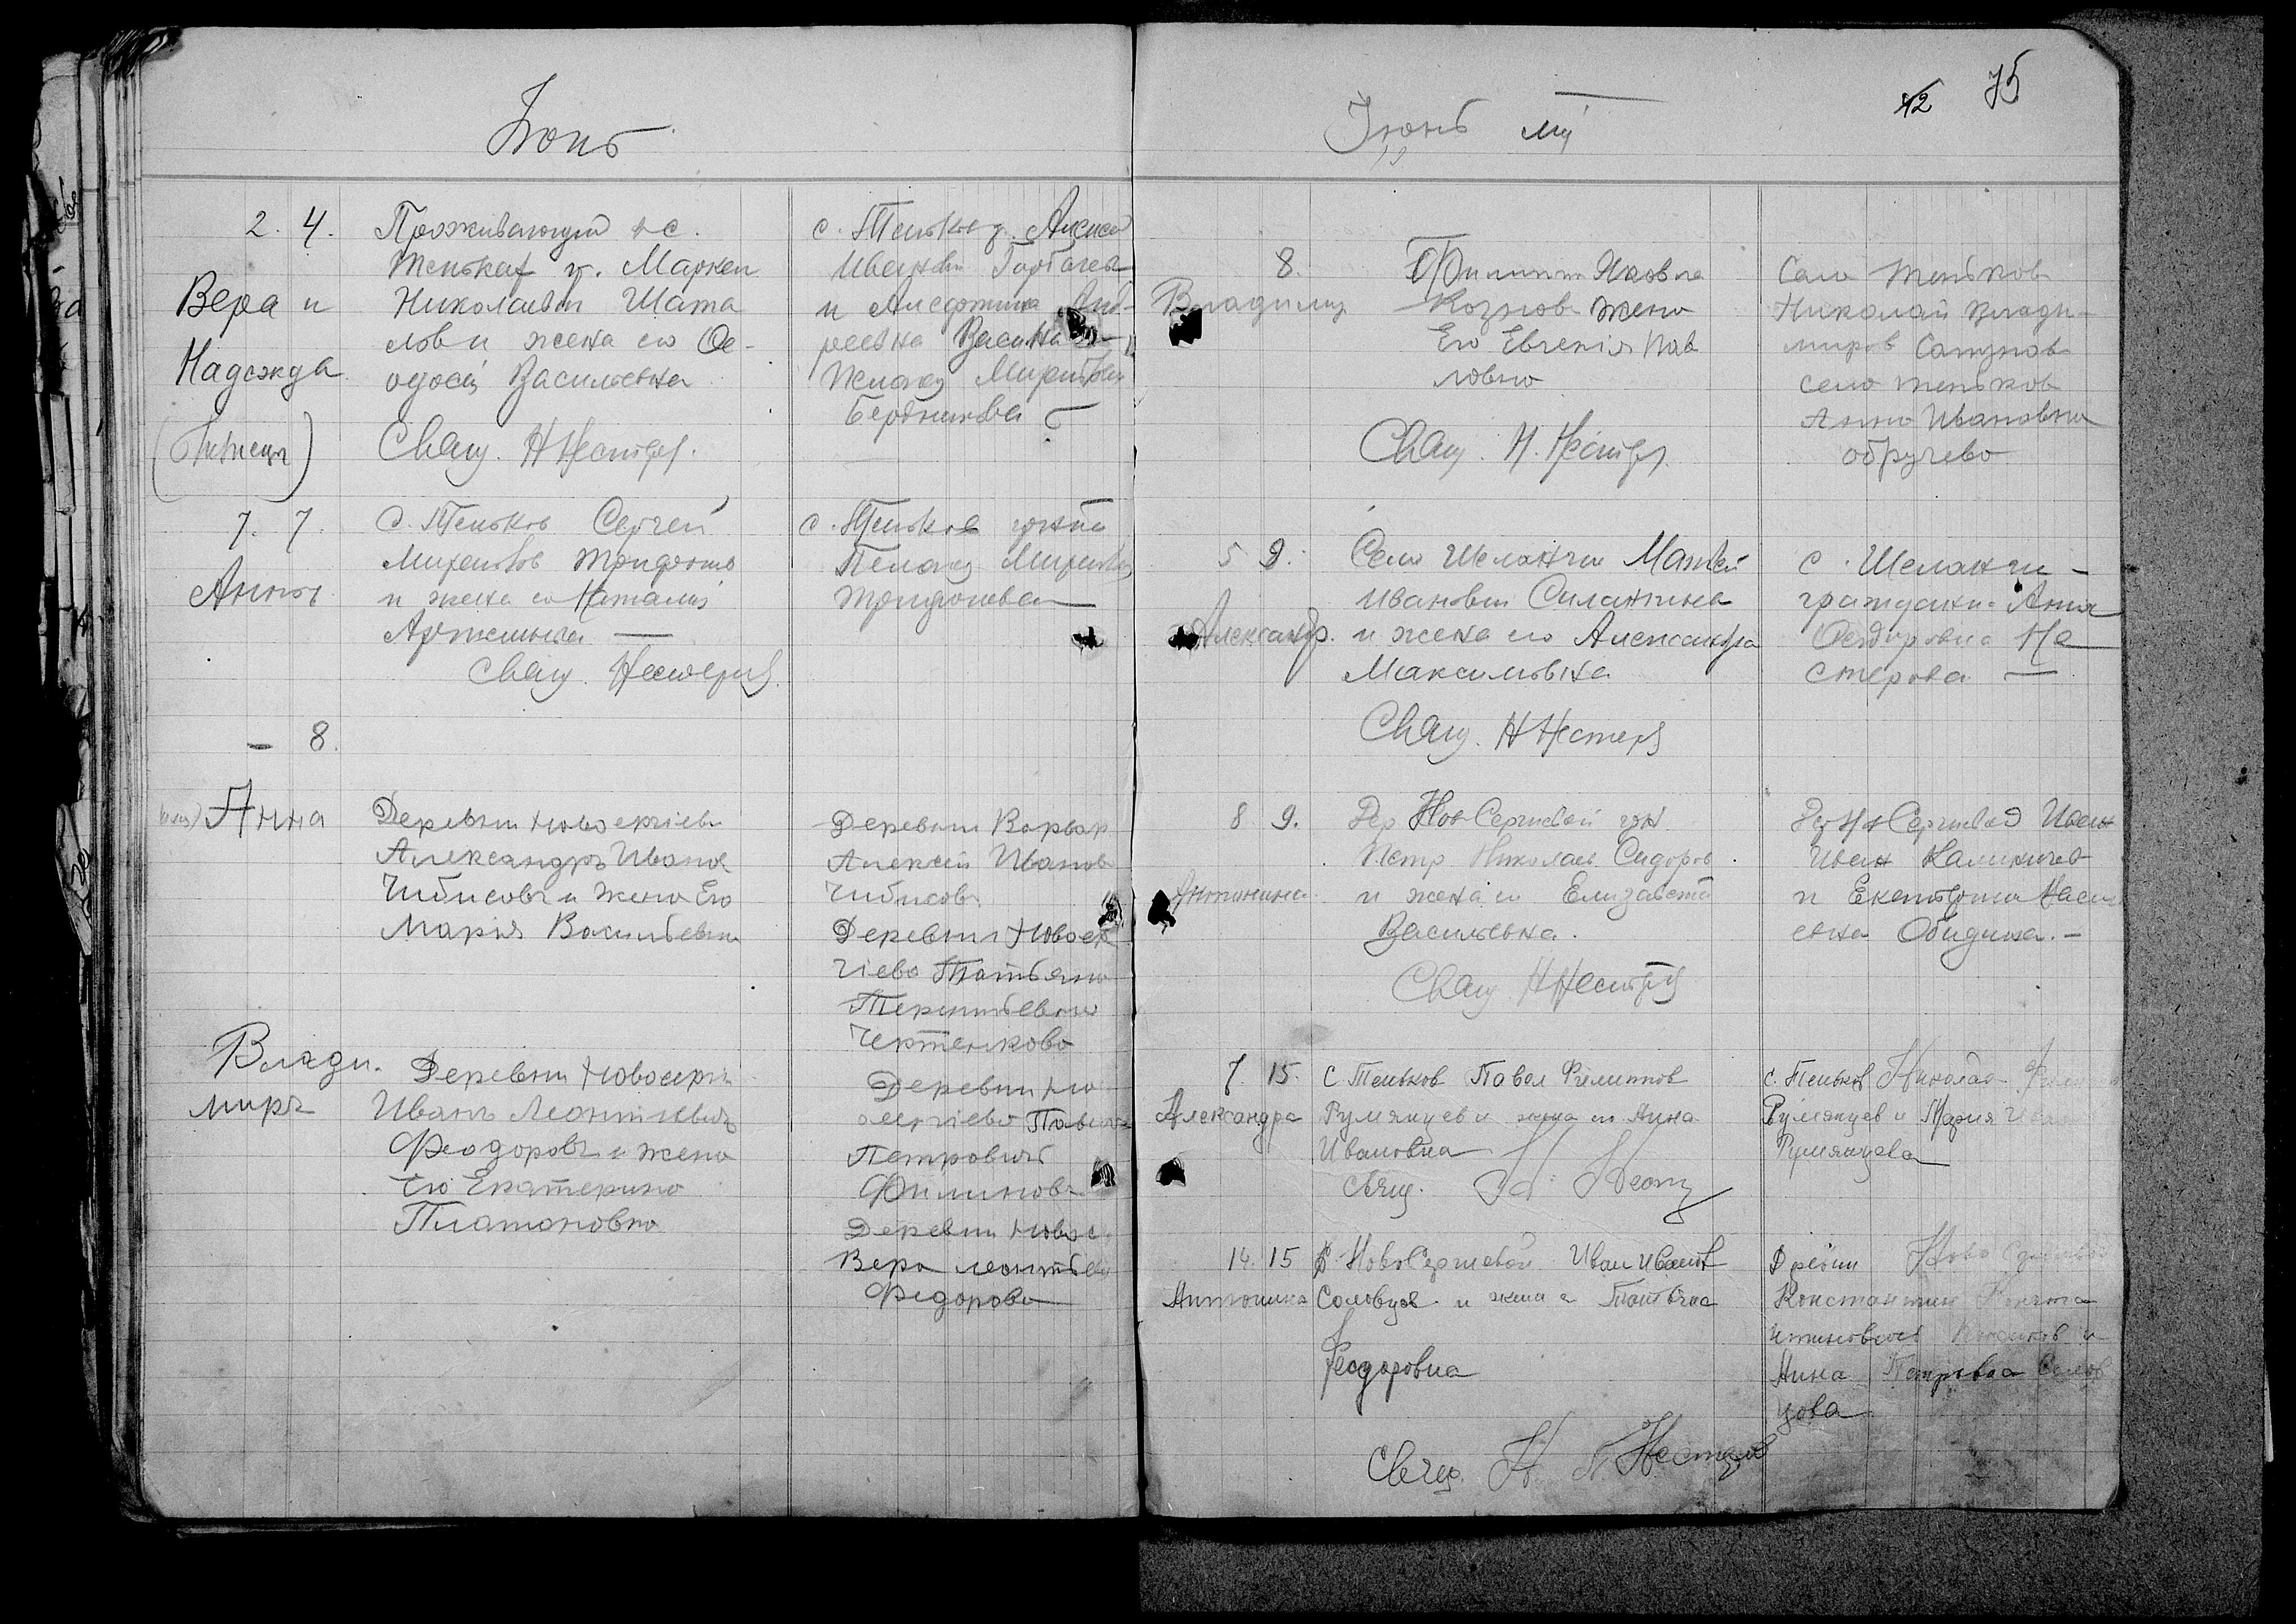 Июнь
2. 4.
Вера и
Надежда
Проживающий в с.
Теньках г. Маркел
Николаевич Шата
лов и жена его Фе-
одосия Васильевна
Свящ. Н Нестер.
с. Теньков г. Алексей
Иванович Горбачев
и
реевна
Бердникова
7. 7.
Анна
с. Теньков Сергей
и жена его Наталия
Свящ. Нестеров
с. Теньков
Пелагея
– 8.
Анна
Деревни Новосергиева
Александръ Иванов
Чибисовъ и жена Его
Мария Васильевна
Деревни
Алексей Иванов
Чибисовъ
Деревни Новосер
гиево Татьяна
Терентьевна
Чертенково
Влади.
миръ
Деревни Новосерги
Иванъ Леонтиевичъ
Феодоровъ и жена
Его Екатерина
Платоновна
Деревни Но
сергиево Павел
Петровичъ
Филиновъ
Деревни Новос
Вера Леонтьев
Федорова
Июнь м-ц
42 75
8.
Владимир
Филипп Яковле
Козлов жена
Его Евгения Пав
ловна
Свящ. Н. Нестер.
Село Теньков
Николай Влади-
миров Сапунов
село Теньков
Анна Ивановна
обручево
5 9.
Александр.
Село Шеланги Матвей
Иванович Силантьев
и жена его Александра
Максимовна
Свящ. Н Нестеров
с. Шеланги –
граждани. Анна
Феодоровна Не
стерова —
8 9.
Антонина
Дер Ново Сергиевой гр
Петр Николаев. Сидоров
и жена его Елизавета
Васильевна.
Свящ Н Нестеров
Иван
и Екатерина Васи
евна Обидина. –
7. 15.
Александра
с. Теньков Павел Филиппов
Румянцев и жена его Анна
Ивановна
свящ. Н. Нест
с. Теньков Николай
Румянцев и Мария
Румянцева
14. 15
Антонина
Д. Ново Сергиевой Иван Иванов
Соловцов и жена его Татьяна
Феодоровна
свящ. Н. Нестеров
Древни Ново
Константин Конста
нтинович
Анна Петровна Солов
цова